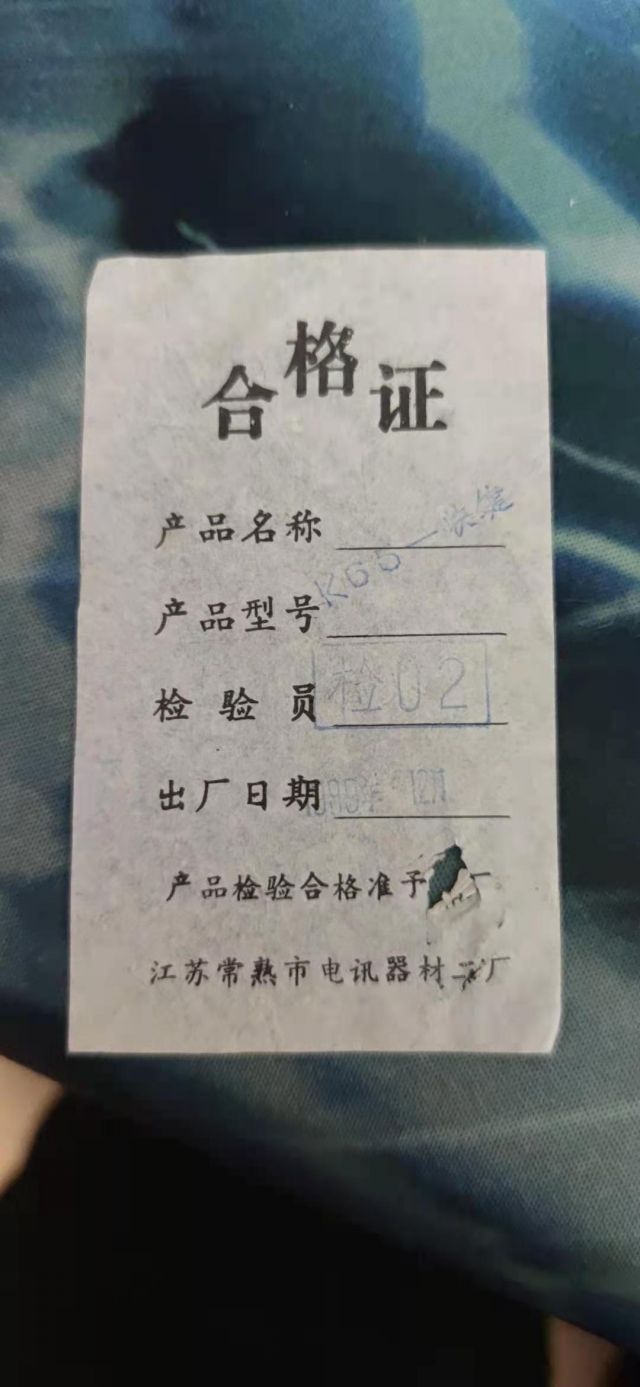 合格证
产品名称
产品型号 K65一
检验员 检02
出厂日期 年 12月
产品检验合格准予 厂
江苏常熟市电讯器材二厂